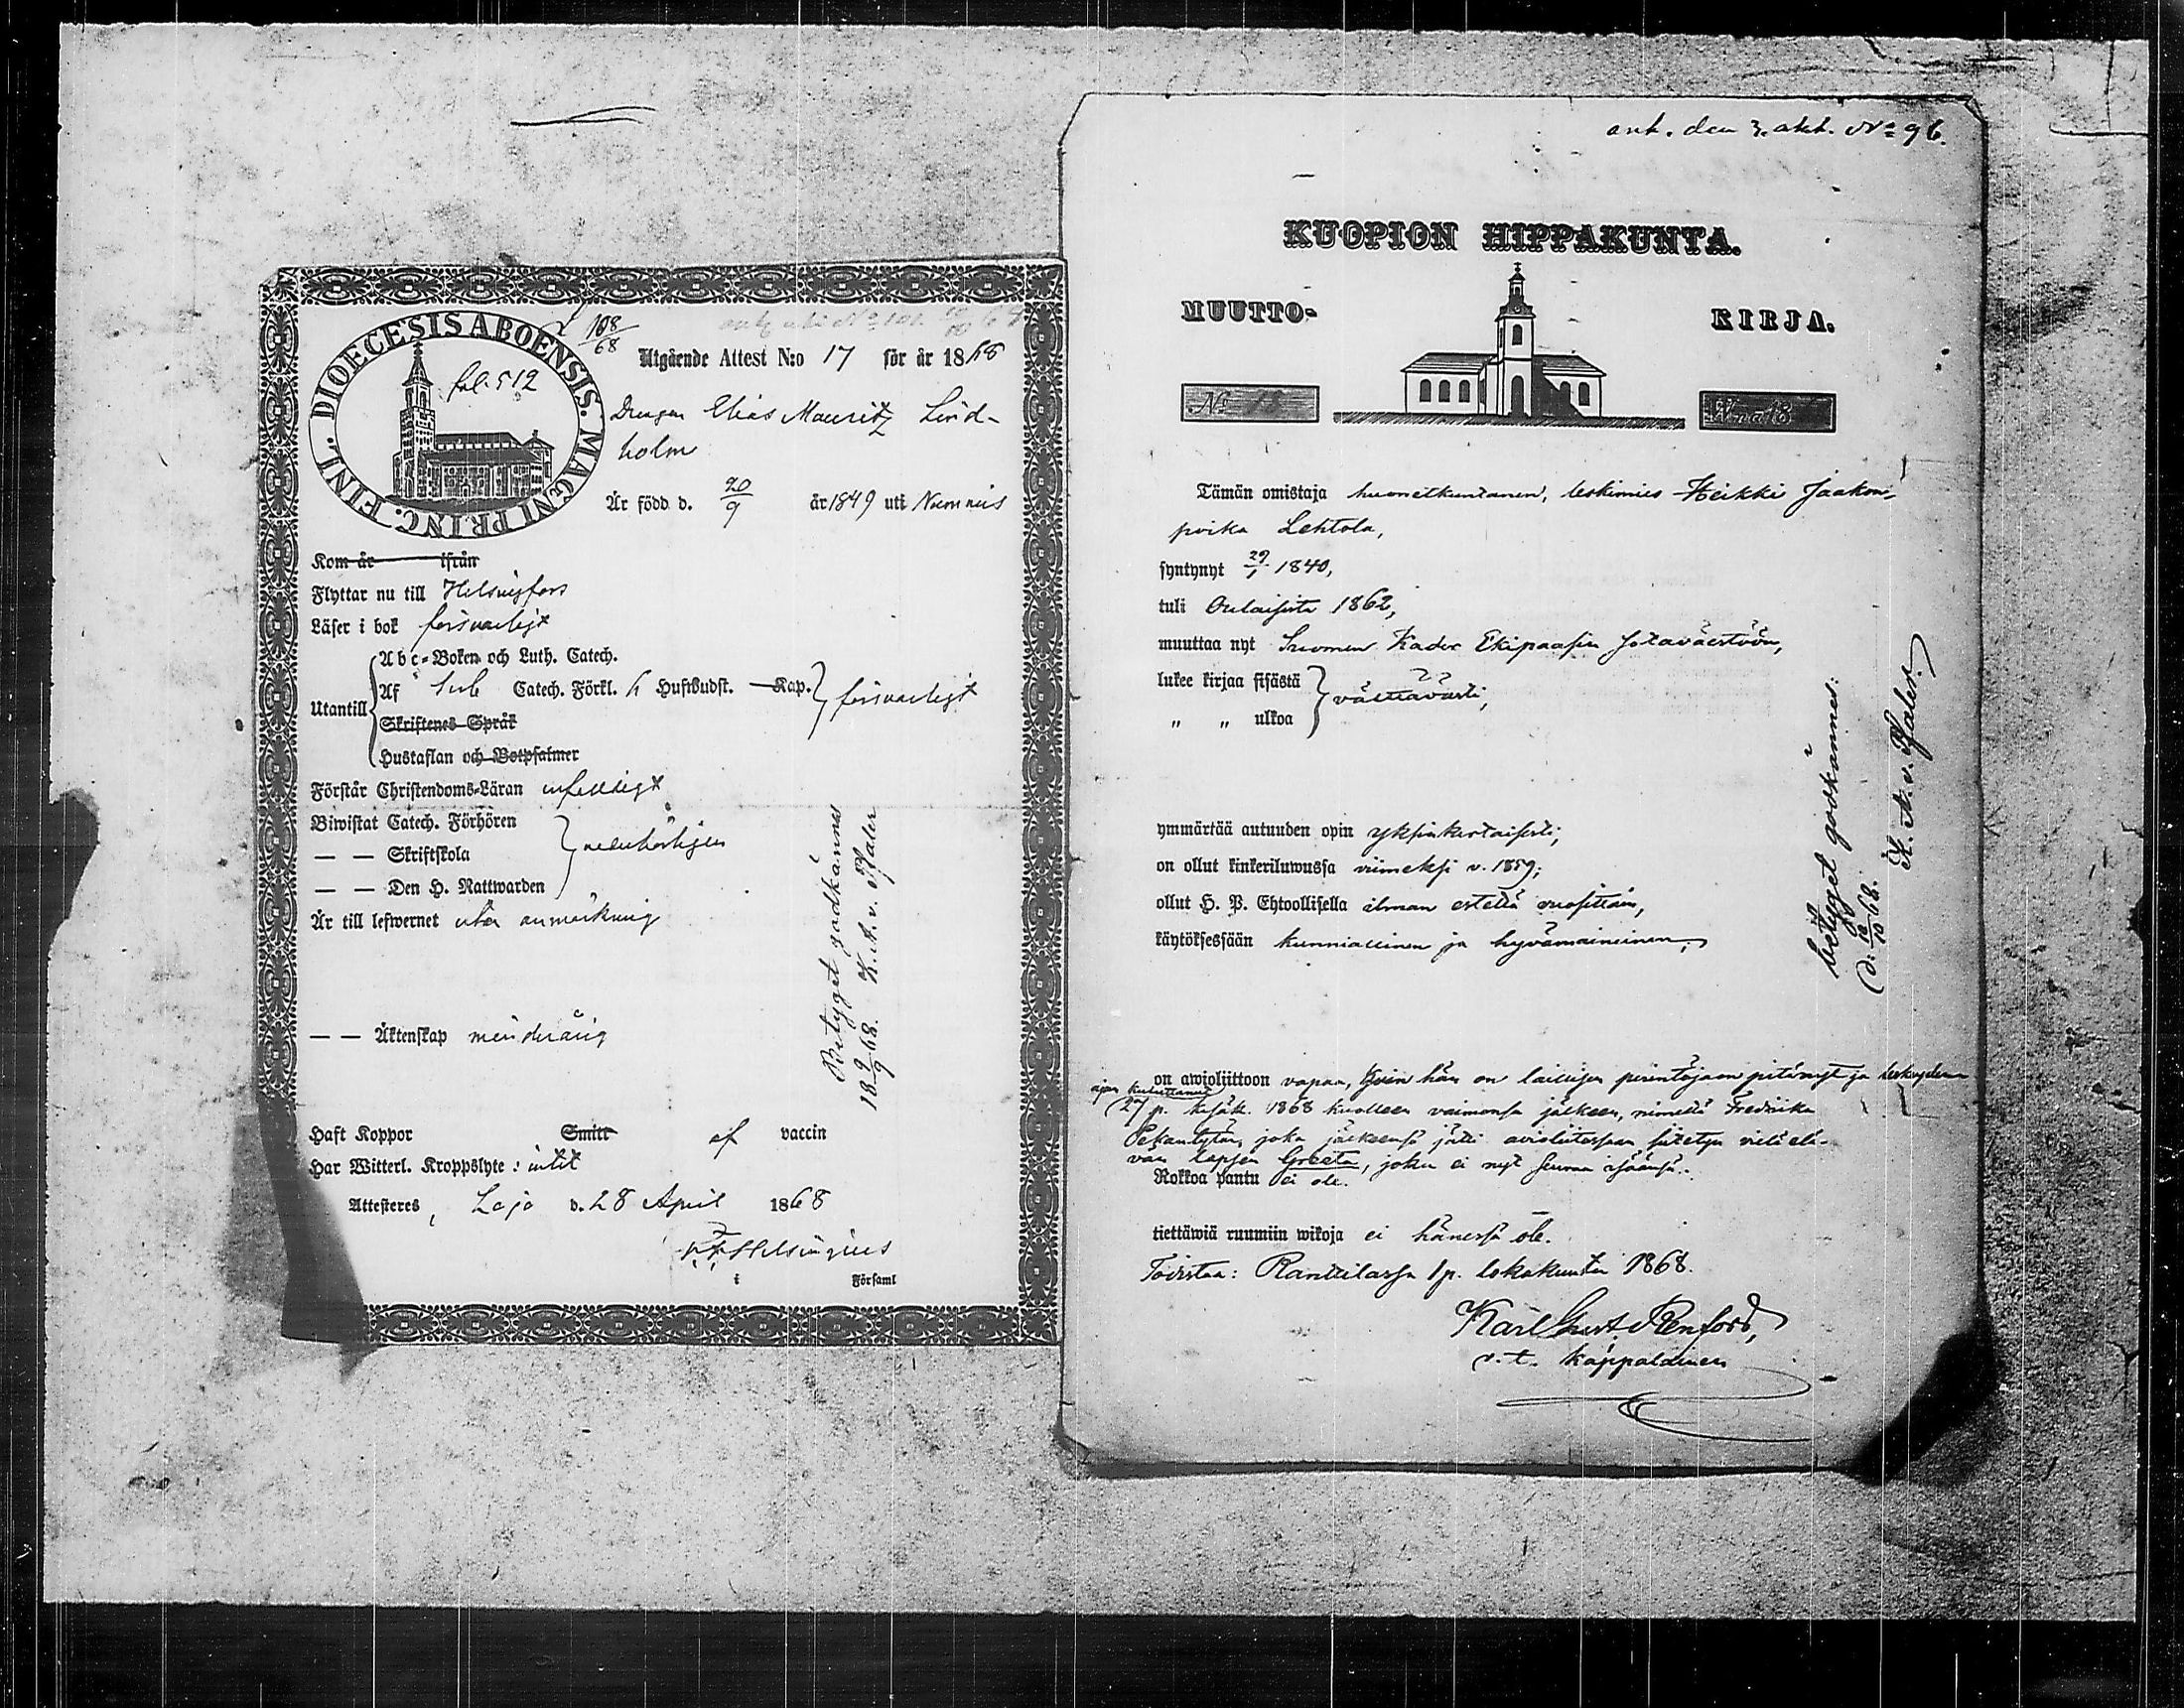 DIOECESIS ABOËNSIS. MAGNI PRINC. FINL.
fol. 512
108/68
Utgående Attest N:o 17 för år 1868
Drengen Elias Mauritz Lind-
holm
Är född d. 20/9 år 1849 uti Nummis
Kom år ifrån
Flyttar nu till Helsingfors
Läser i bok försvarligt
Utantill
Abc-Boken och Luth. Catech.
Af Catech. Förkl. h Husbudst. Kap.
Skriftenes Språk
Hustaflan och Botpsalmer
försvarligt
Förstår Christendoms-Läran enfaldigt
Biwistat Catech. Förhören
— — Skriftskola
— — Den H. Nattwarden
vederbörligen
Är till lefwernet utan anmärkning
— — Äktenskap minderårig
Haft Koppor Smitt af vaccin
Har Witterl. Kroppslyte: intet
Attesteres, Lojo d. 28 April 1868
Helsingius
i Församl
Betyget godkännes
18 9/9 68. K. A. v. Pfaler
ank. den 3. okt. No 96.
KUOPION HIPPAKUNTA.
MUUTTO- KIRJA.
No 18
W:na 18
Tämän omistaja huonetkuntanen, leskimies Heikki Jaakon-
poika Lehtola,
syntynyt 29/1 1840,
tuli Oulaisista 1862,
muuttaa nyt Suomen Kader Ekipaasin Sotaväestöön,
lukee kirjaa sisästä
„ „ ulkoa
välttävästi;
ymmärtää autuuden opin yksinkertaisesti;
on ollut kinkeriluwussa viimeksi v. 1859;
ollut H. P. Ehtoollisella ilman estettä vuosittain,
käytöksessään kunniallinen ja hyvämaineinen;
on awioliittoon vapaa, kuin hän on laillisen perintöjaon pitänyt ja leskeyden
ajan kuluttanut
27 p. kesäk. 1868 kuolleen vaimonsa jälkeen, nimeltä Fredrika
Pekantytär, joka jälkeensä jätti avioliitossaan siitetyn vielä elä-
vän lapsen Greeta, joka ei nyt seuraa isäänsä.
Rokkoa pantu ei ole.
tiettäwiä ruumiin wikoja ei hänessä ole.
Todistaa: Rantsilassa 1 p. lokakuuta 1868.
Karl Gust. Renfors,
v. t. kappalainen
betyget godkännes:
d. 10/10 68.
K. A. v. Pfaler